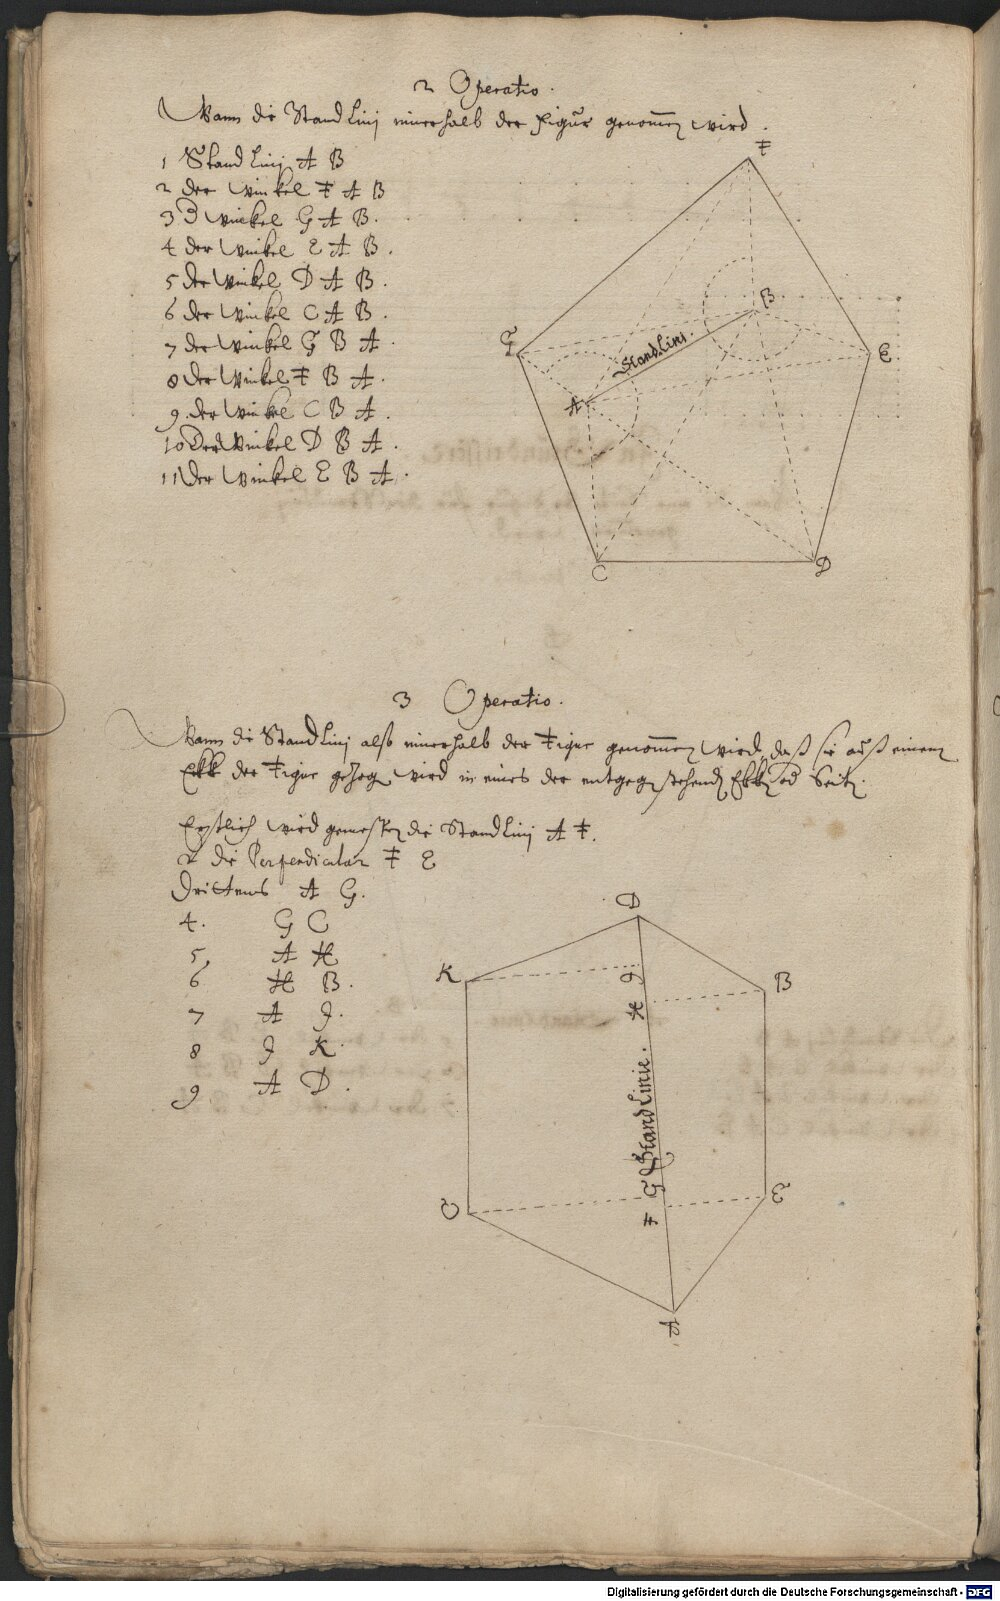 2 Operatio.
Wann die Stand Linj innerhalb der Figur genom̄en wird.
1 Stand Linj A B
2 der Winkel F A B
3 D Winkel G A B.
4 der Winkel E A B.
5 der Winkel D A B.
6 der Winkel C A B.
7 der Winkel G B A.
8 der Winkel F B A.
9. der Winkel C B A.
10 Der Winkel D B A.
11 der Winkel E B A.
F
B
G
Stand Linj.
E
A
C
D
3 Operatio.
Wann die Stand Linj also innerhalb der Figur genom̄en wird, daß sie auß einem
Ekk der Figur gezogen wird in eines der entgegen stehenden Ekken od Seiten.
Erstlich wird gemessen die Stand Linj A F.
2 die Perpendicular F E
Drittens A G.
4. G C
5, A H
6 H B.
7 A J.
8 J K.
9 A D.
D
K
J
B
H
Stand Linie.
G
C
E
F
A
Digitalisierung gefördert durch die Deutsche Forschungsgemeinschaft - DFG